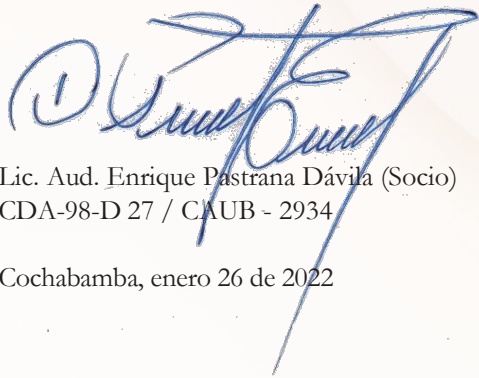 Lic. Aud. Enrique Pastrana Dávila (Socio)
CDA-98-D 27 / CAUB - 2934
Cochabamba, enero 26 de 2022